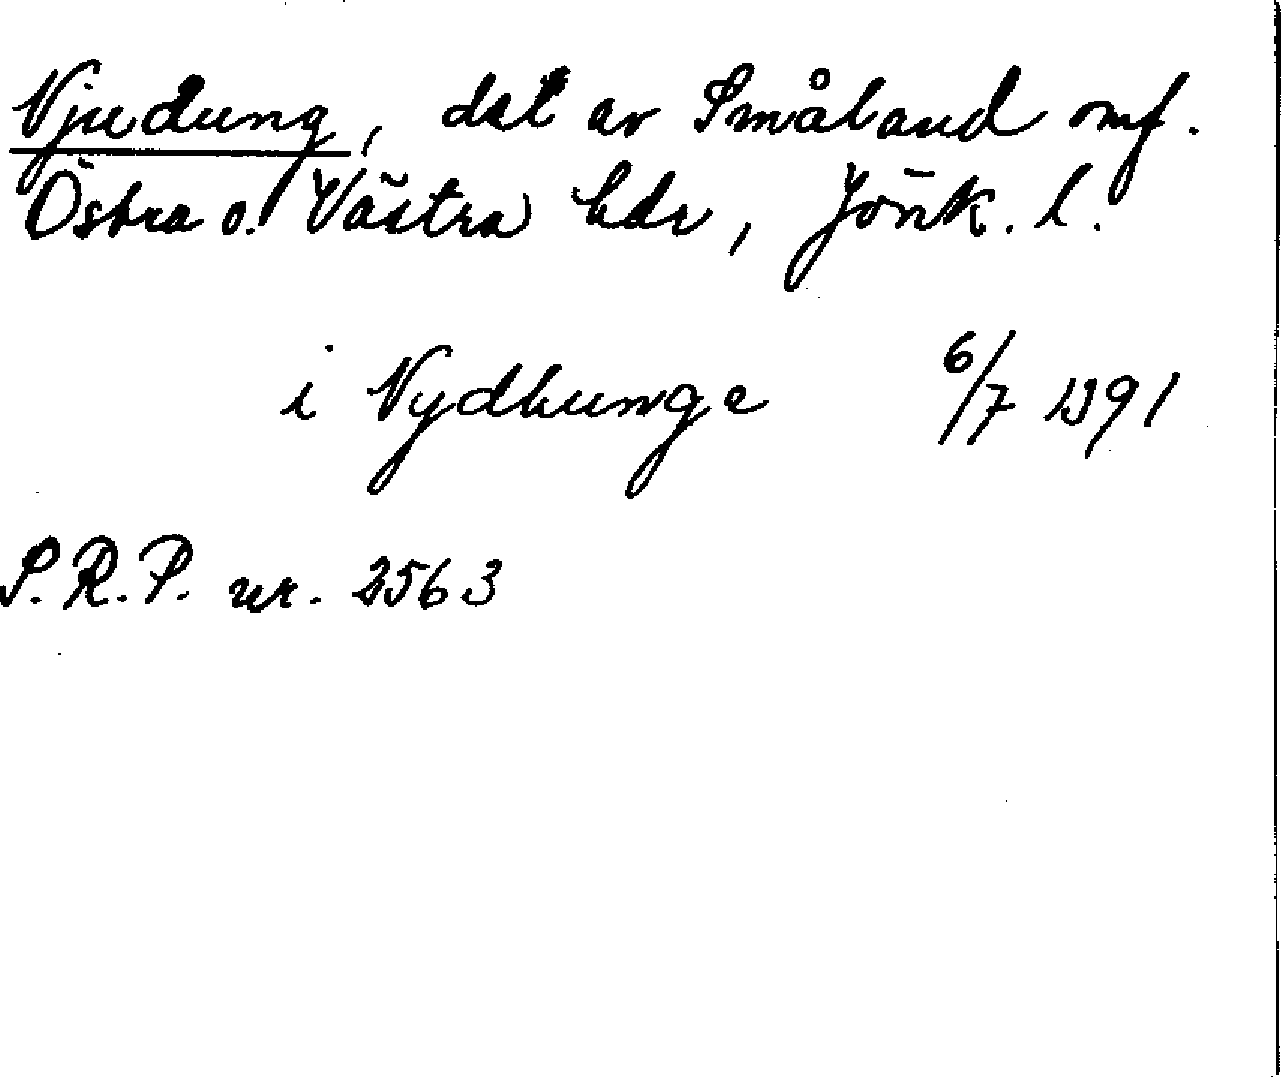 Njudung, del av Småland omf.
Östra o. Västra hdr, Jönk. l.
i Nydhunge 6/7 1391
S.R.P. nr. 2563